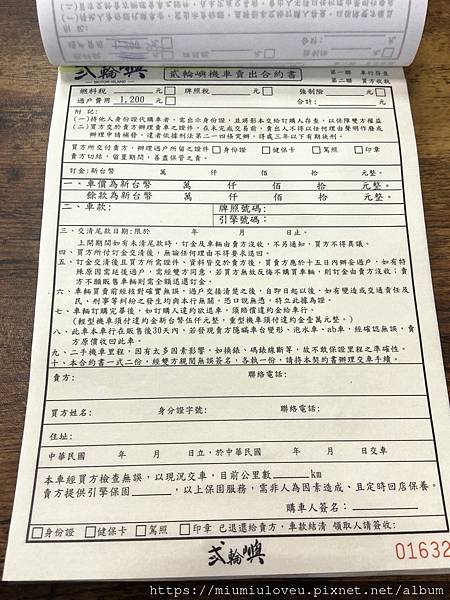 貳輪嶼
MOTOR ISLAND
貳輪嶼機車賣出合約書
第一聯 車行存查
第二聯 買方收執
燃料稅 元□ 牌照稅 元□ 強制險 元□
過戶費用 1,200 元□ 合計: 元
附 記:
(一)持他人身份證代購車者,需出示身份證,且將影本交給訂購人存查,以保障雙方權益
(二)買方交於賣方辦理貴車之證件,在未完成交易前,賣出人不得以任何理由聲明作廢或
辦理申請補發。違者依據刑法第二一四條究辦,得處三年以下有期徒刑。
買方所交付賣方,辦理過戶所留之證件 □身份證 □健保卡 □駕照 □印章
賣方切結,留置期間,善盡保管之責。
訂金:新台幣 萬 仟 佰 拾 元整。
一、車價為新台幣 萬 仟 佰 拾 元整。
餘款為新台幣 萬 仟 佰 拾 元整。
二、車款: 牌照號碼:
引擎號碼:
三、交清尾款日期:限於 年 月 日止。
上開期間如有未清尾款時,訂金及車輛由賣方沒收,不另通知,買方不得異議。
四、買方所付訂金交清後,無論任何理由不得要求退回。
五、訂金交清後且買方所需證件、資料皆交於賣方後,買賣方應於十五日內辦妥過戶,如有特
殊原因需延後過戶,需經雙方同意,若買方無故反悔不購買車輛,則訂金由賣方沒收;賣
方不願販售車輛則需全額退還訂金。
六、車輛買賣前經核對確實無誤,過戶交清楚之後,自即日起以後,如有違法或交通責任及
民、刑事等糾紛之發生均與本行無關,恐口說無憑,特立此據為證。
七、車輛訂購完畢後,如訂購人違約欲退車,須賠償違約金給車行。
(輕型機車須付違約金新台幣伍仟元整,重型機車須付違約金壹萬元整。)
八、此車本車行在販售後30天內,若發現賣方隱瞞車台變形、泡水車、ab車,經確認無誤,賣
方原價收回此車。
九、二手機車里程,因有太多因素影響,如換錶、碼錶線斷等,故不敢保證里程之準確性。
十、本合約書一式二份,經雙方親閱無誤簽名,各執一份,請持本契約書辦理交車手續。
賣方: 聯絡電話:
買方姓名: 身分證字號: 聯絡電話:
住址:
中華民國 年 月 日立,於中華民國 年 月 日交車
本車經買方檢查無誤,以現況交車,目前公里數 km
賣方提供引擎保固 ,以上保固服務,需非人為因素造成、且定時回店保養。
購車人簽名:
□身份證 □健保卡 □駕照 □印章 已退還給賣方,車款結清 領取人請簽收:
貳輪嶼
01632
https://miumiuloveu.pixnet.net/album